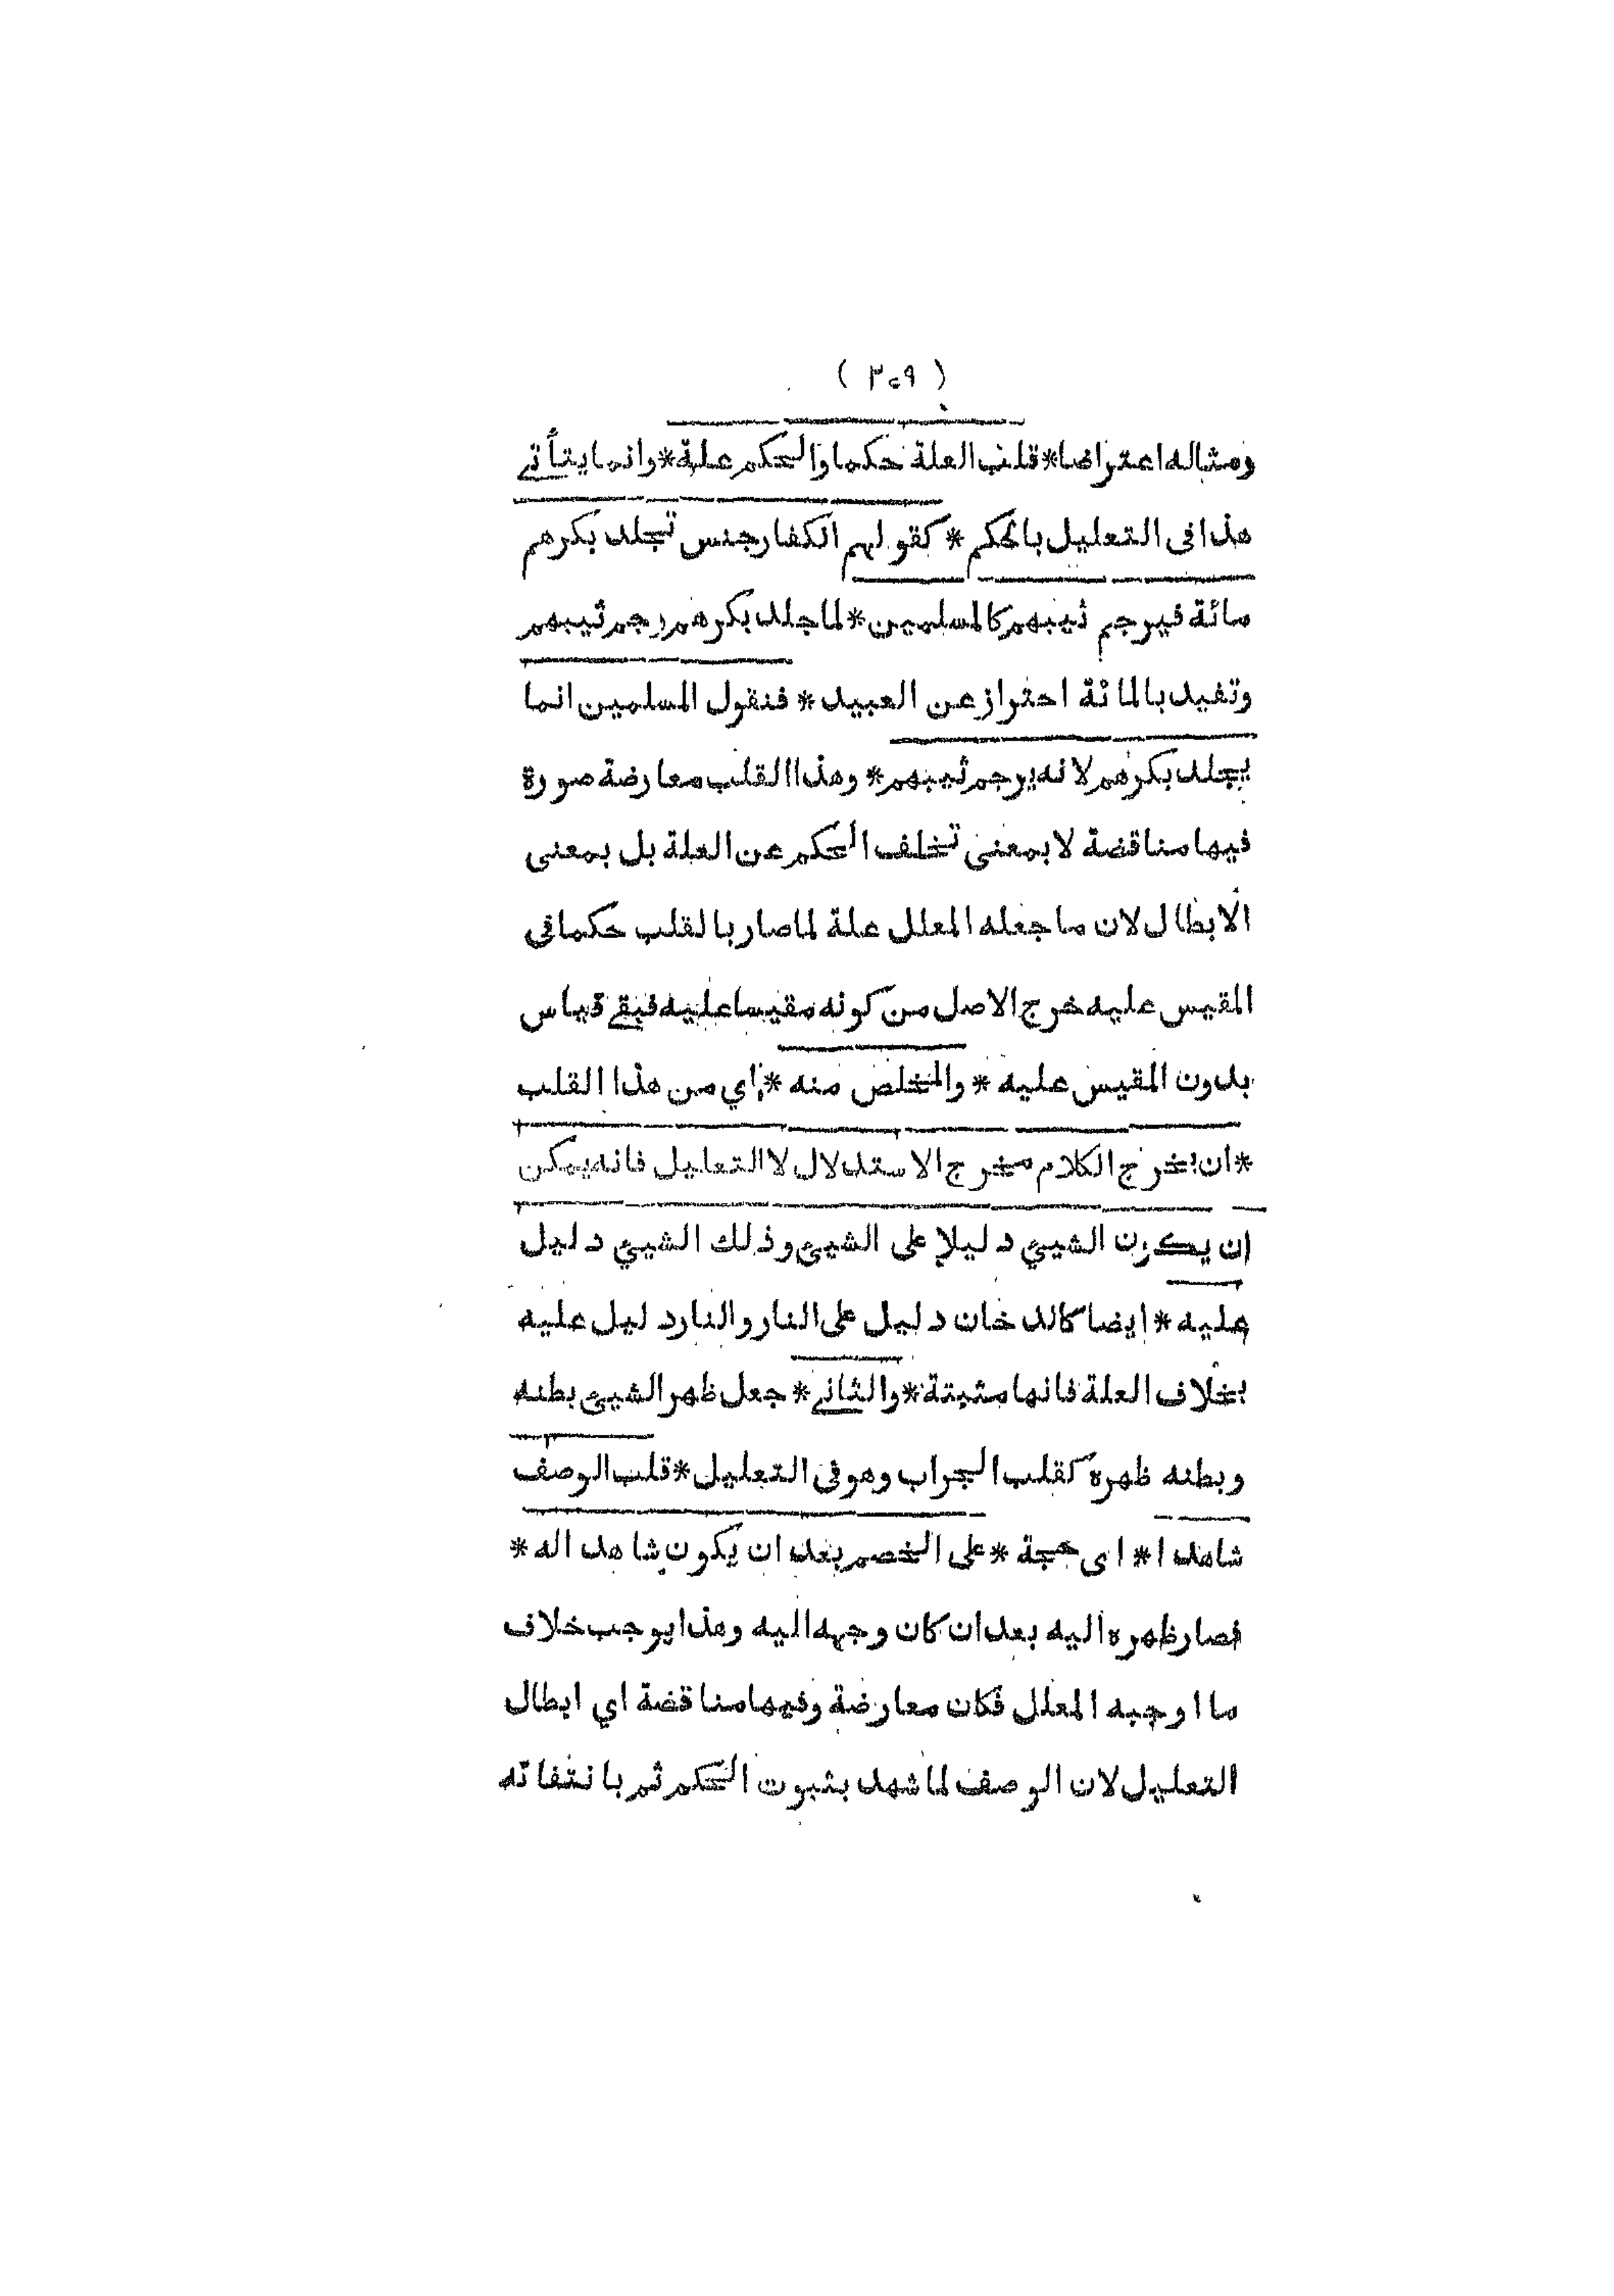 ( ٣٠٩ )
ومثاله اعتراضا * قلب العلة حكما والحكم علة * وانما يتأتے
هذا فى التعليل بالحكم * كقولهم الكفار جنس تجلد بكرهم
مائة فيرجم ثيبهم كالمسلمين * لما جلد بكرهم رجم ثيبهم
وتفيد بالمائة احتراز عن العبيد * فنقول المسلمين انما
يجلد بكرهم لانه يرجم ثيبهم * وهذا القلب معارضة صورة
فيها مناقضة لا بمعنى تخلف الحكم عن العلة بل بمعنى
الابطال لان ما جعله المعلل علة لما صار بالقلب حكما فى
المقيس عليه خرج الاصل من كونه مقيسا عليه فبقے قياس
بدون المقيس عليه * والمخلص منه * اي من هذا القلب
* ان يخرج الكلام مخرج الاستدلال لا التعليل فانه يمكن
ان يكون الشيئ دليلا على الشيئ وذلك الشيئ دليل
عليه * ايضا كالدخان دليل على النار والنار دليل عليه
بخلاف العلة فانها مثبتة * والثانے * جعل ظهر الشيئ بطنه
وبطنه ظهره كقلب الجراب وهو فى التعليل * قلب الوصف
شاهدا * اى حجة * على الخصم بعد ان يكون شاهدا له *
فصار ظهره اليه بعد ان كان وجهه اليه وهذا يوجب خلاف
ما اوجبه المعلل فكان معارضة وفيها مناقضة اي ابطال
التعليل لان الوصف لما شهد بثبوت الحكم ثم بانتفائه